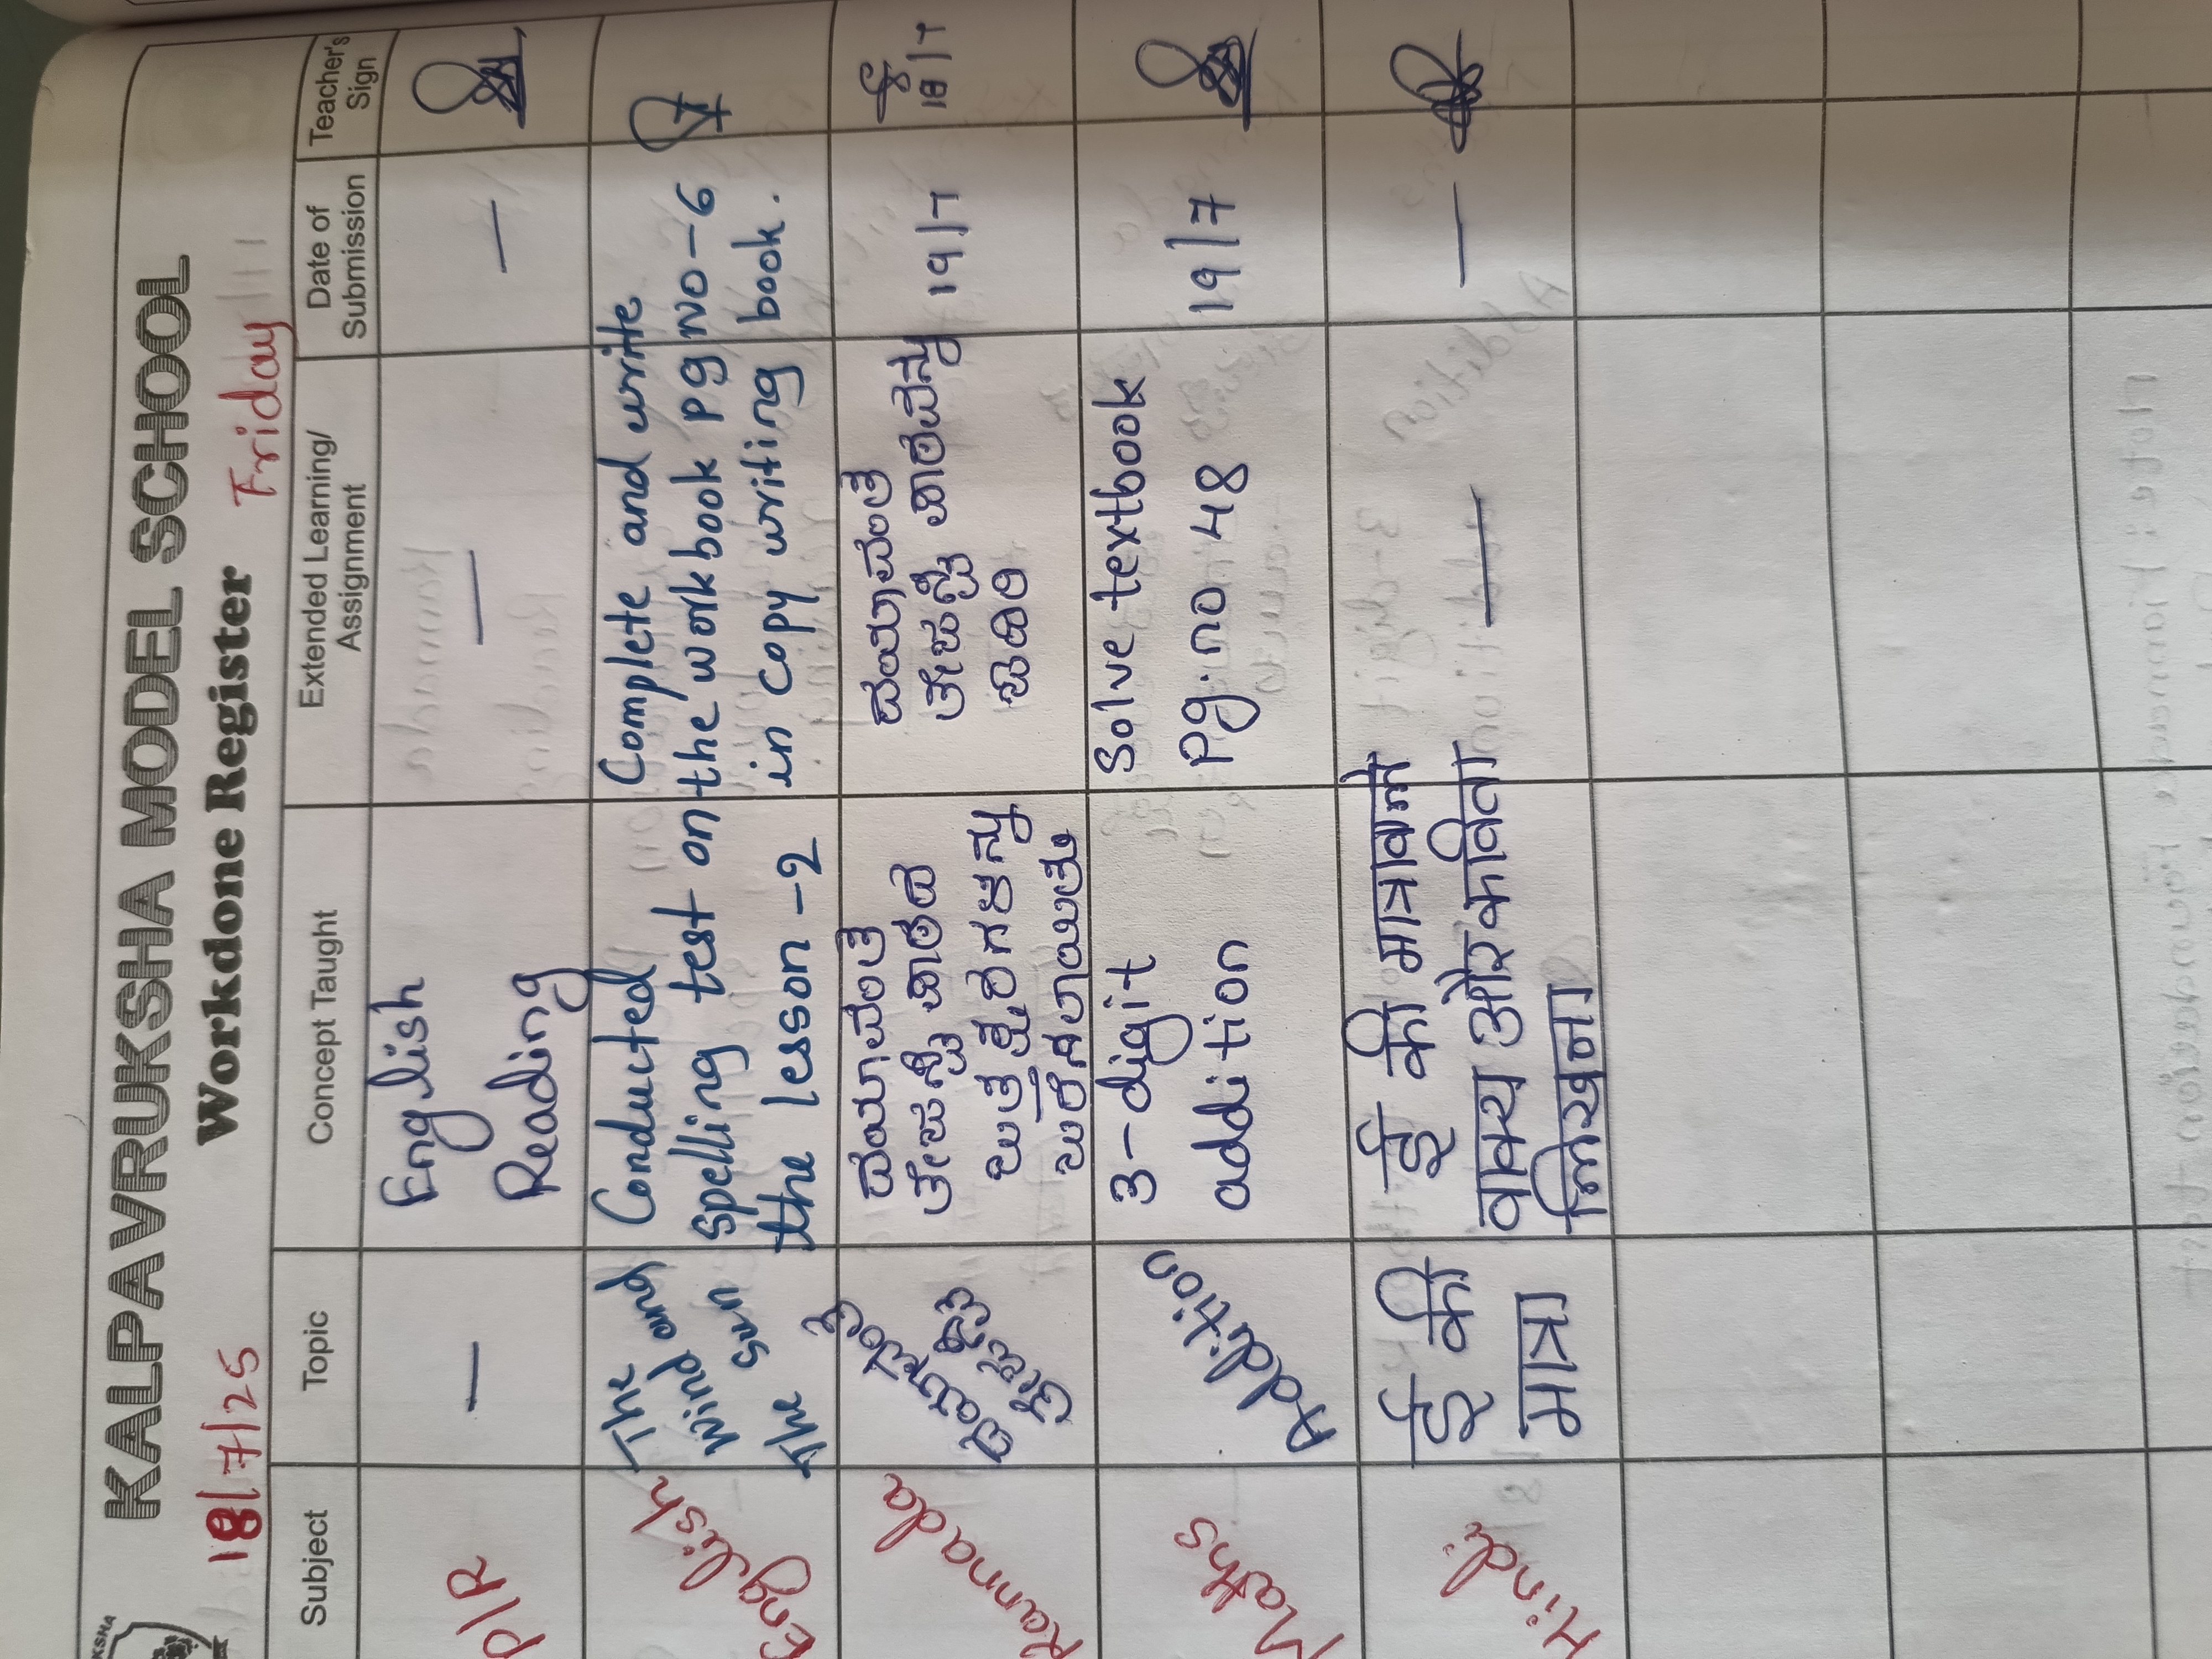 KALPAVRUKSHA MODEL SCHOOL
Workdone Register
18/7/25
Friday
Subject
Topic
Concept Taught
Extended Learning/
Assignment
Date of
Submission
Teacher's
Sign
P/R
—
English
Reading
—
—
English
The
Wind and
The sun
Conducted
spelling test on
the lesson-2
Complete and write
the workbook Pg no-6
in copy writing book.
Kannada
ದಯಾವಂತ
ತೇಜಸ್ವಿ
ದಯಾವಂತ
ತೇಜಸ್ವಿ ಪಾಠದ
ಉಕ್ತಲೇಖನ
ದಯಾವಂತ
ತೇಜಸ್ವಿ ಪಾಠವನ್ನು
ಓದಿರಿ
19/7
18/7
Maths
Addition
3-digit
addition
Solve textbook
Pg.no 48
19/7
Hindi
ई की
मात्रा
ई की मात्रावाले
वाक्य और कविता
लिखना
—
—